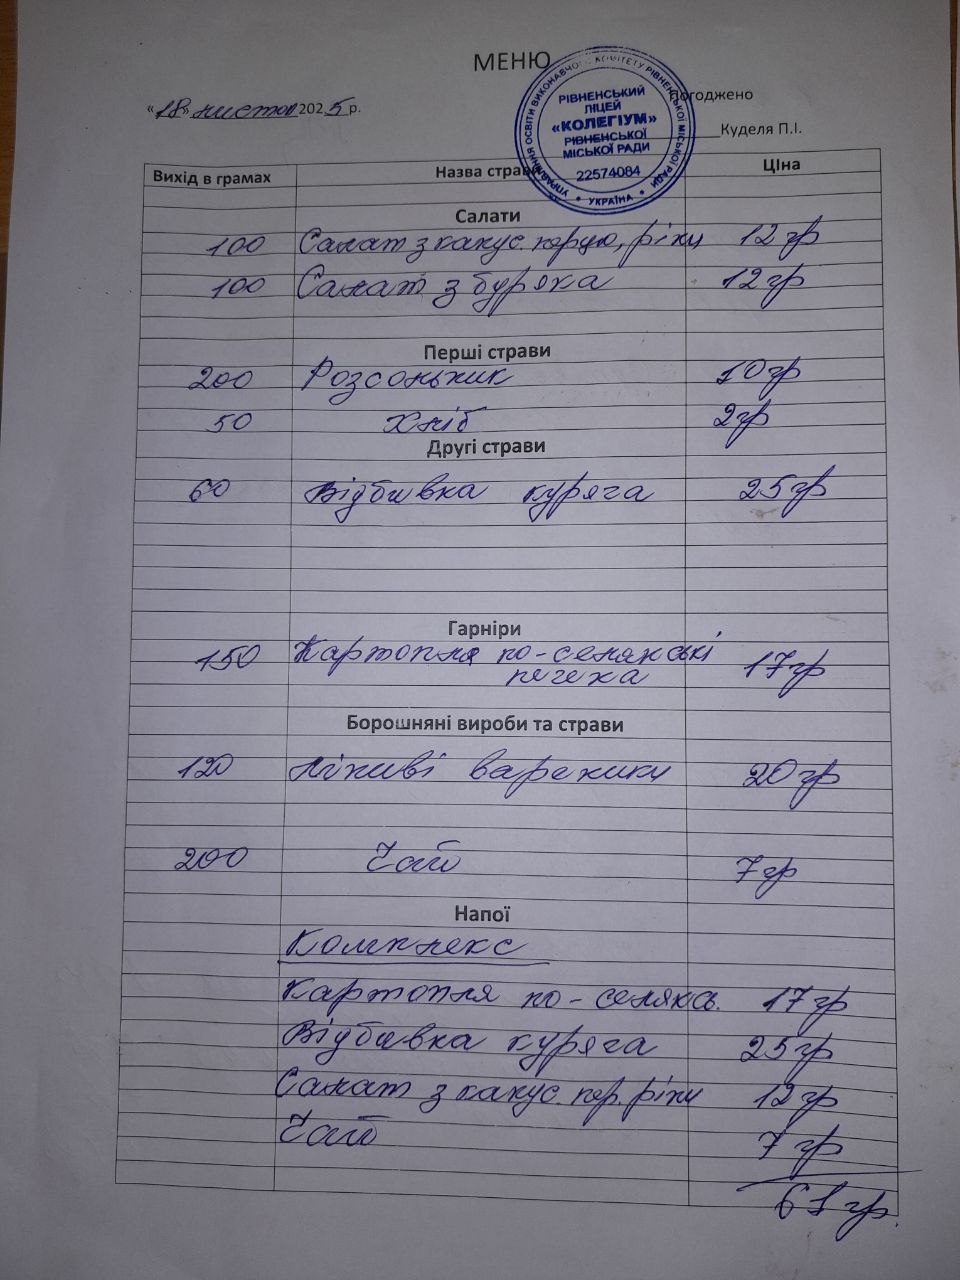 МЕНЮ
«18» листоп 2025 р.
Погоджено
Куделя П.І.
УПРАВЛІННЯ ОСВІТИ ВИКОНАВЧОГО КОМІТЕТУ РІВНЕНСЬКОЇ МІСЬКОЇ РАДИ
* УКРАЇНА *
РІВНЕНСЬКИЙ
ЛІЦЕЙ
«КОЛЕГІУМ»
РІВНЕНСЬКОЇ
МІСЬКОЇ РАДИ
22574084
Вихід в грамах Назва страви ЦІна
Салати
100 Салат з капус. перцю, ріпи 12 гр
100 Салат з буряка 12 гр
Перші страви
200 Розсольник 10 гр
50 Хліб 2 гр
Другі страви
60 Відбивка куряча 25 гр
Гарніри
150 Картопля по-селянські 17 гр
печена
Борошняні вироби та страви
120 Ліниві вареники 20 гр
200 Чай 7 гр
Напої
Комплекс
Картопля по-селянс. 17 гр
Відбивка куряча 25 гр
Салат з капус. пер. ріпи 12 гр
Чай 7 гр
61 гр.